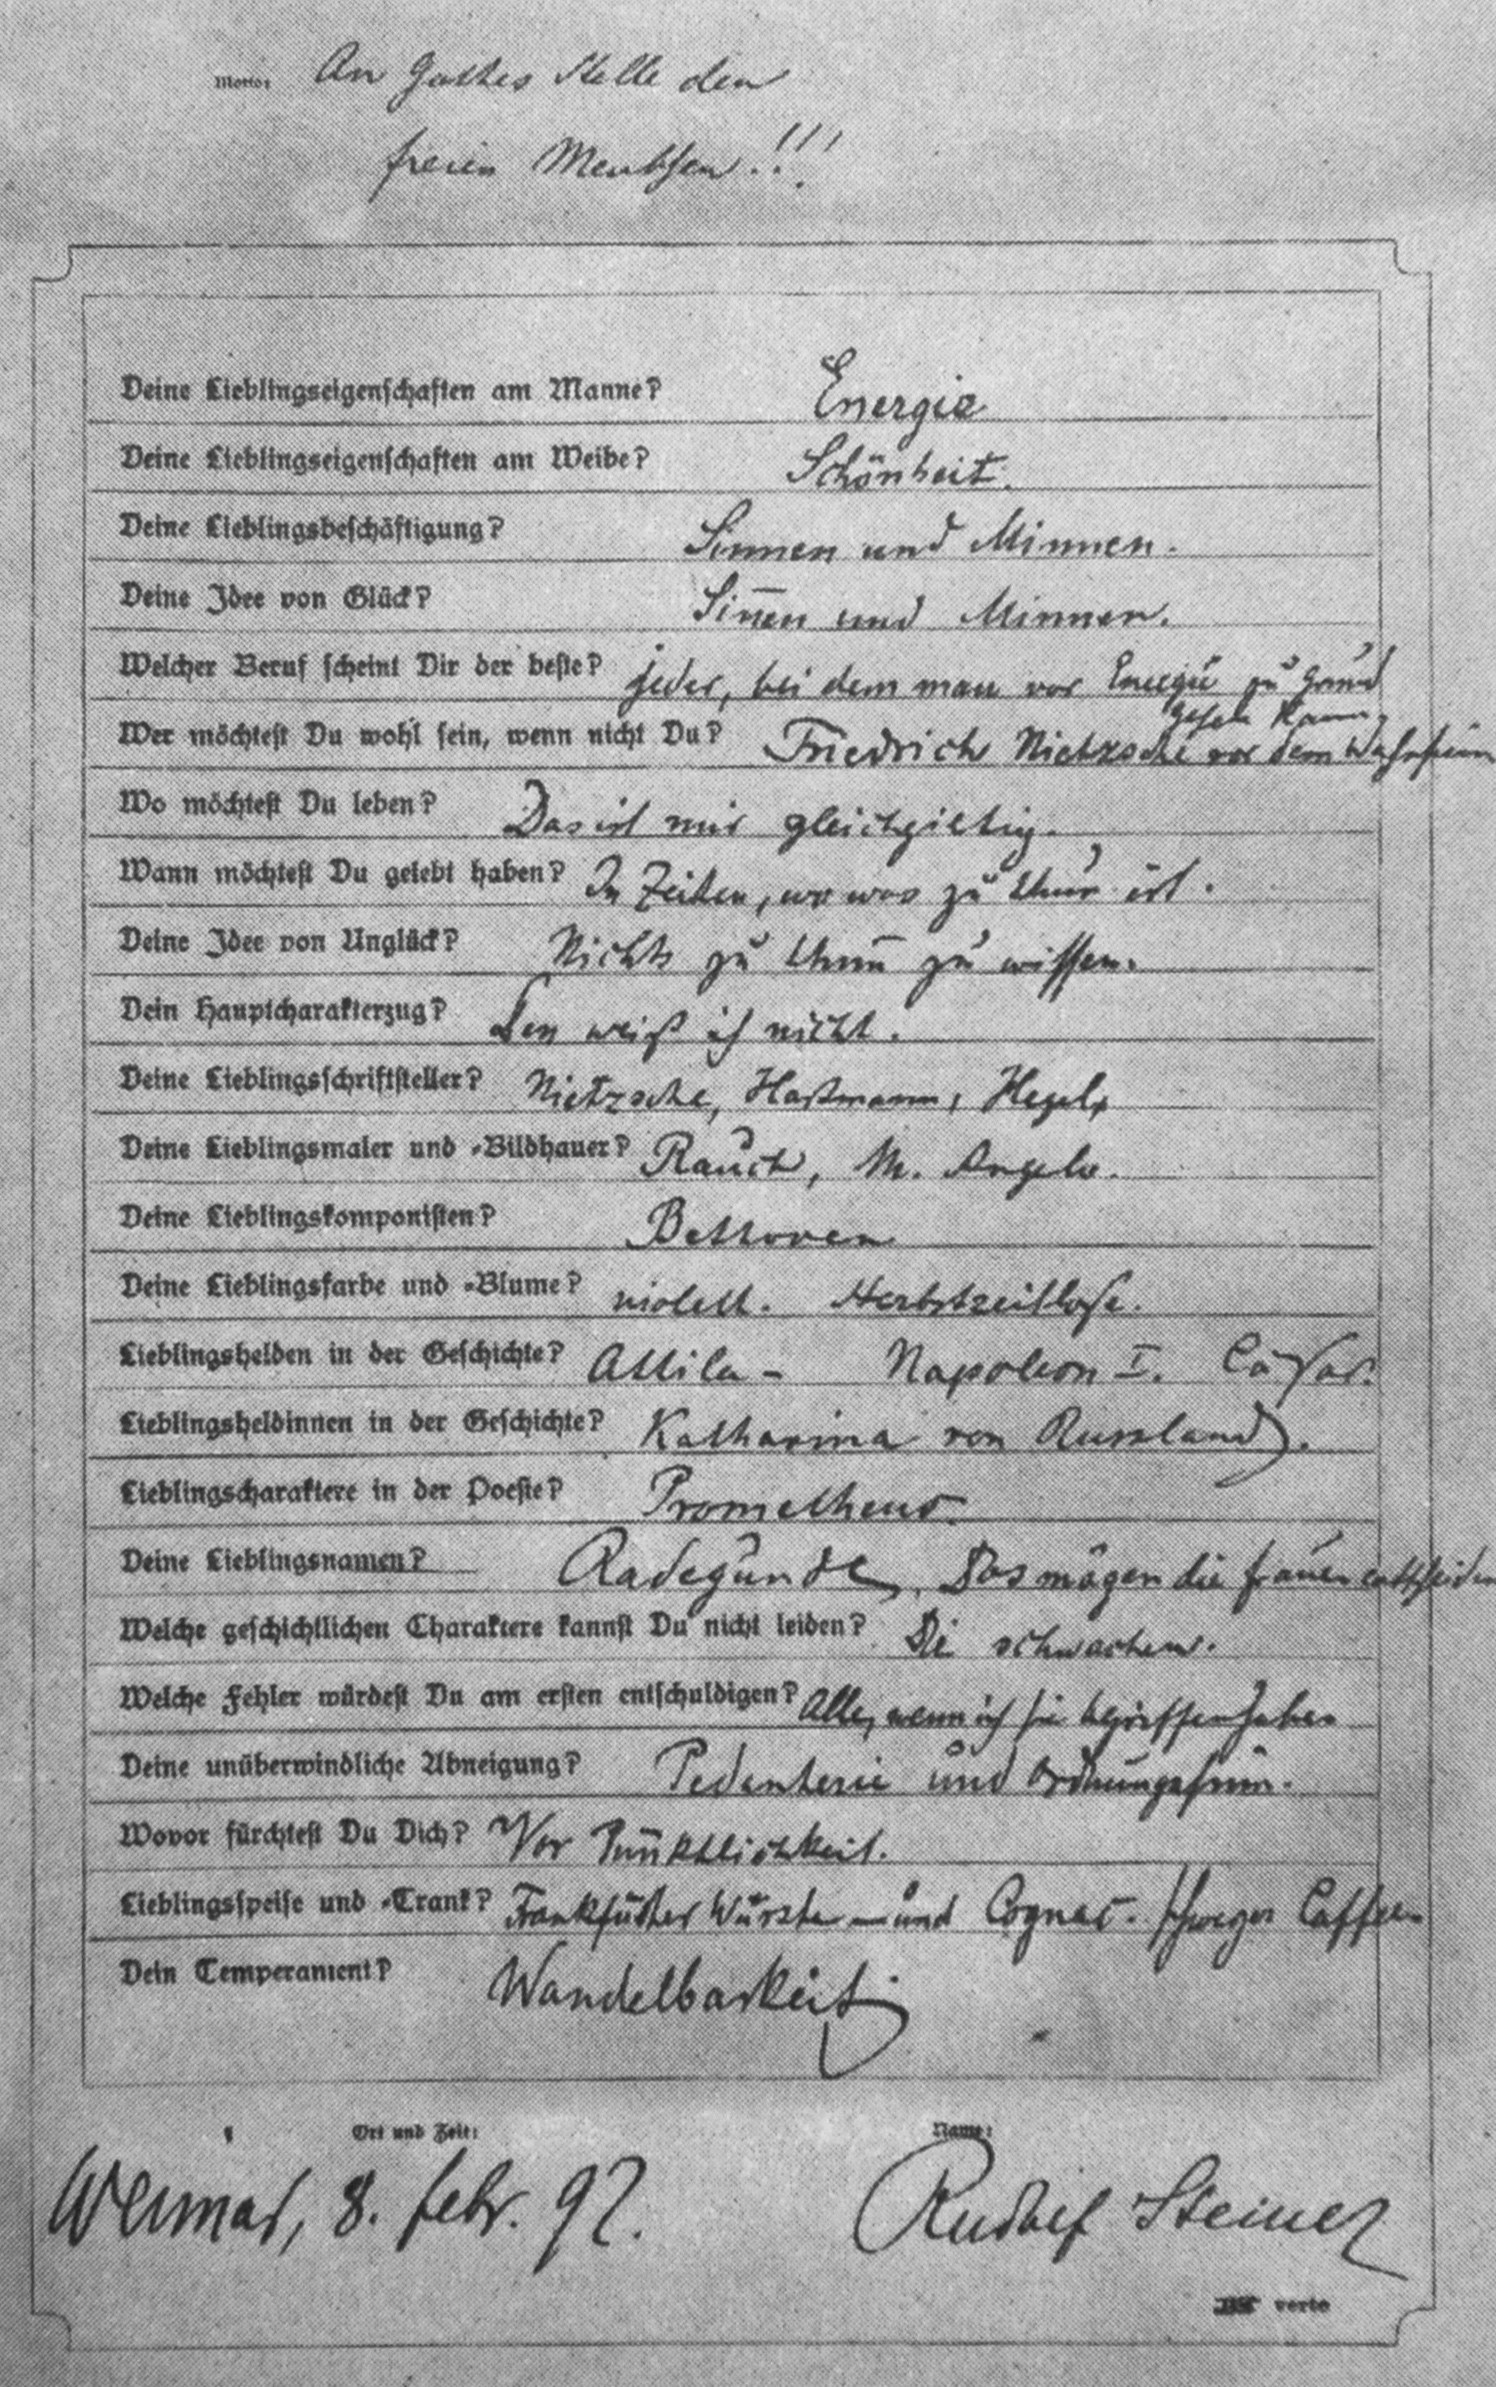 Motto: An Gottes Stelle den
freien Menschen!!!
Deine Lieblingseigenschaften am Manne? Energie
Deine Lieblingseigenschaften am Weibe? Schönheit.
Deine Lieblingsbeschäftigung? Sinnen und Minnen.
Deine Idee von Glück? Sin̄en und Minnen.
Welcher Beruf scheint Dir der beste? jeder, bei dem man vor Energie zu Grund
gehen kann.
Wer möchtest Du wohl sein, wenn nicht Du? Friedrich Nietzsche vor dem Wahnsinn
Wo möchtest Du leben? Das ist mir gleichgiltig.
Wann möchtest Du gelebt haben? In Zeiten, wo was zu thun ist.
Deine Idee von Unglück? Nichts zu thun zu wissen.
Dein Hauptcharakterzug? Den weiß ich nicht.
Deine Lieblingsschriftsteller? Nietzsche, Hartmann, Hegel,
Deine Lieblingsmaler und -Bildhauer? Rauch, M. Angelo.
Deine Lieblingskomponisten? Bethoven
Deine Lieblingsfarbe und -Blume? violett. Herbstzeitlose.
Lieblingshelden in der Geschichte? Attila - Napoleon I. Cäsar.
Lieblingsheldinnen in der Geschichte? Katharina von Russland.
Lieblingscharaktere in der Poesie? Prometheus.
Deine Lieblingsnamen? Radegunde, Das mögen die Frauen entscheiden
Welche geschichtlichen Charaktere kannst Du nicht leiden? Die schwachen.
Welche Fehler würdest Du am ersten entschuldigen? Alle, wenn ich sie begriffen habe
Deine unüberwindliche Abneigung? Pedanterie und Ordnungssinn.
Wovor fürchtest Du Dich? Vor Pünktlichkeit.
Lieblingsspeise und -Trank? Frankfurter Würste - und Cognac. schwarzer Caffee
Dein Temperament? Wandelbarkeit
Ort und Zeit: Name:
Weimar, 8. Febr. 92. Rudolf Steiner
verte